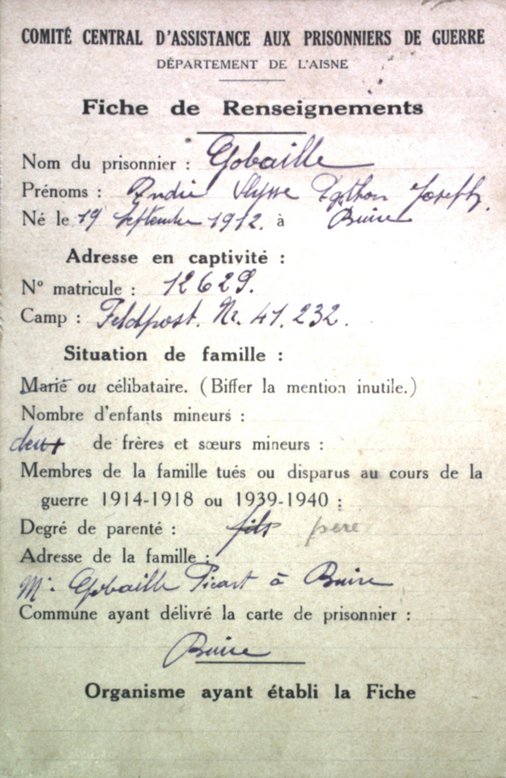 COMITÉ CENTRAL D'ASSISTANCE AUX PRISONNIERS DE GUERRE
DÉPARTEMENT DE L'AISNE
Fiche de Renseignements
Nom du prisonnier : Gobaille
Prénoms : André Ulysse Joseph.
Né le 19 Septembre 1912. à Buire
Adresse en captivité :
N° matricule : 12629.
Camp : Feldpost. Nr. 41.232.
Situation de famille :
Marié ou célibataire. (Biffer la mention inutile.)
Nombre d'enfants mineurs :
deux de frères et sœurs mineurs :
Membres de la famille tués ou disparus au cours de la
guerre 1914-1918 ou 1939-1940 :
Degré de parenté : fils père
Adresse de la famille :
Mr. Gobaille Picart à Buire
Commune ayant délivré la carte de prisonnier :
Buire
Organisme ayant établi la Fiche